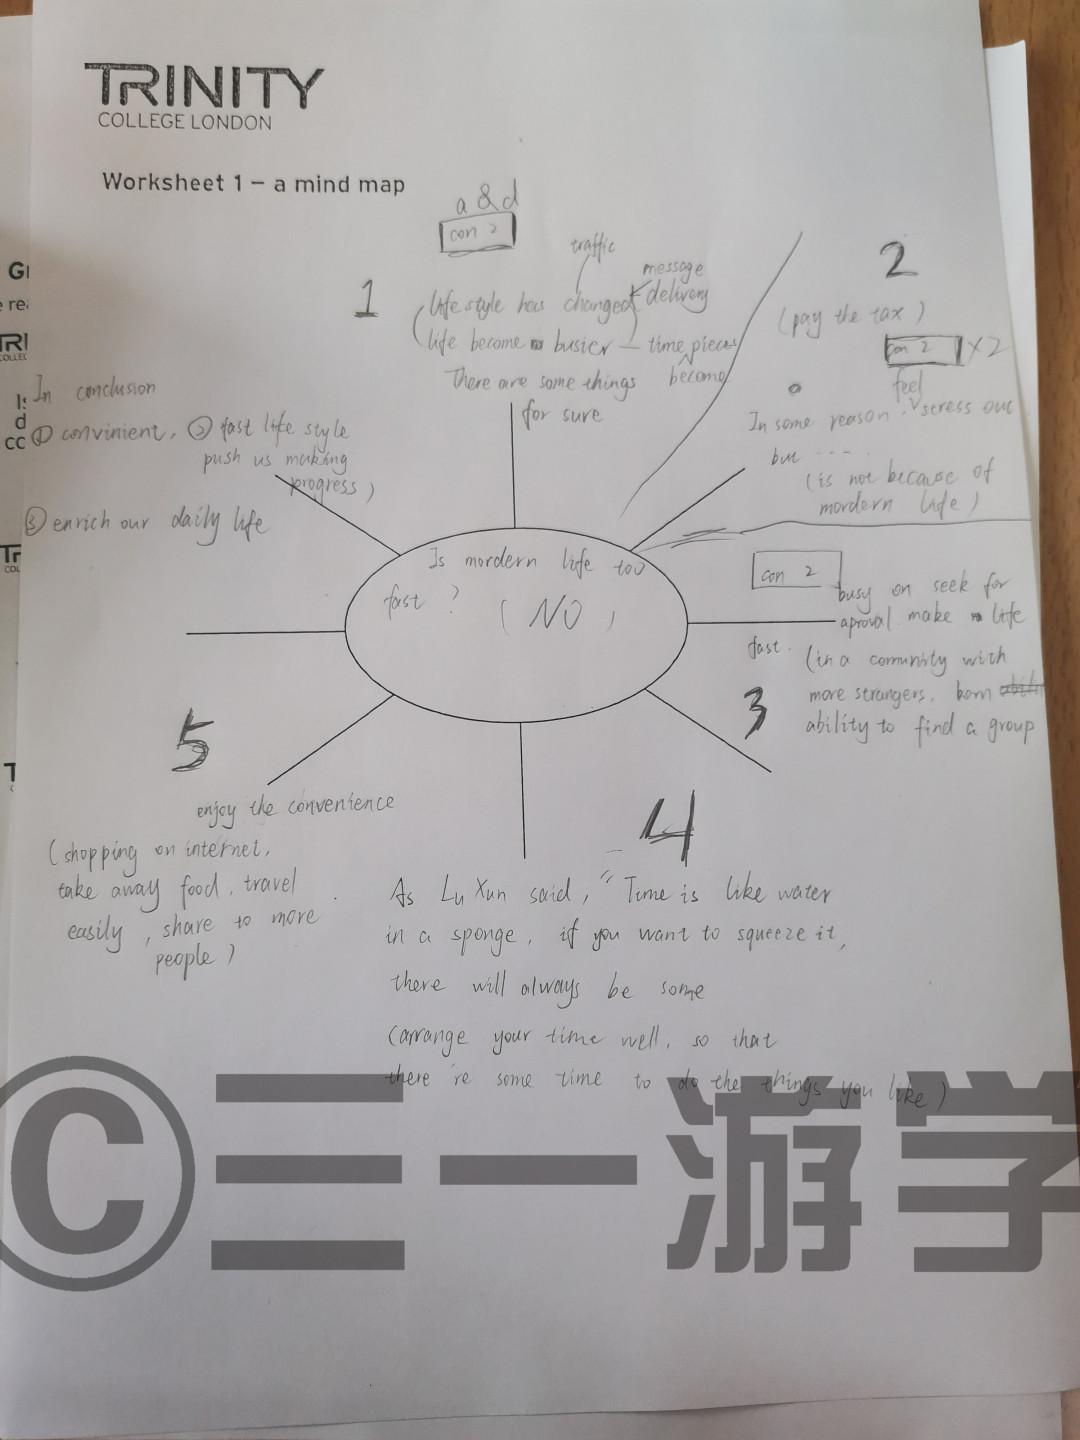 TRINITY
COLLEGE LONDON
Worksheet 1 – a mind map
a & d
con 2
1
traffic
message
delivery
(life style has changed
(life become busier — time pieces
become
There are some things
for sure
2
(pay the tax)
con 2 ×2
feel
In some reason, stress out
but ·····
(is not because of
mordern life)
In conclusion
① convinient, ② fast life style
push us making
progress)
③ enrich our daily life
Is mordern life too
fast? (NO)
con 2
busy on seek for
aproval make life
fast.
(in a comunity with
more strangers, born
ability to find a group
3
5
enjoy the convenience
(shopping on internet,
take away food, travel
easily, share to more
people)
4
As Lu Xun said, "Time is like water
in a sponge, if you want to squeeze it,
there will always be some
(arrange your time well, so that
there 're some time to do the things you like)
©三一游学
G
re
TRI
COLLEC
I
d
cc
T
COL
T